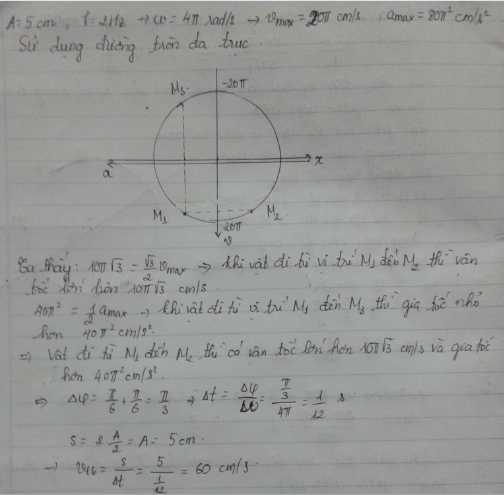 A = 5 cm, f = 2 Hz → ω = 4π rad/s → vmax = 20π cm/s, amax = 80π² cm/s²
Sử dụng đường tròn đa trục
-20π
M3
a
x
M1
M2
20π
v
Ta thấy: 10π√3 = √3/2 vmax → khi vật đi từ vị trí M1 đến M2 thì vận
tốc lớn hơn 10π√3 cm/s
40π² = 1/2 amax → khi vật đi từ vị trí M1 đến M3 thì gia tốc nhỏ
hơn 40π² cm/s²
⇒ Vật đi từ M1 đến M2 thì có vận tốc lớn hơn 10π√3 cm/s và gia tốc
hơn 40π² cm/s²
⇒ Δφ = π/6 + π/6 = π/3 ⇒ Δt = Δφ/Δω = π/3/4π = 1/12 s
S = 2 A/2 = A = 5 cm.
→ vtb = S/Δt = 5/1/12 = 60 cm/s.